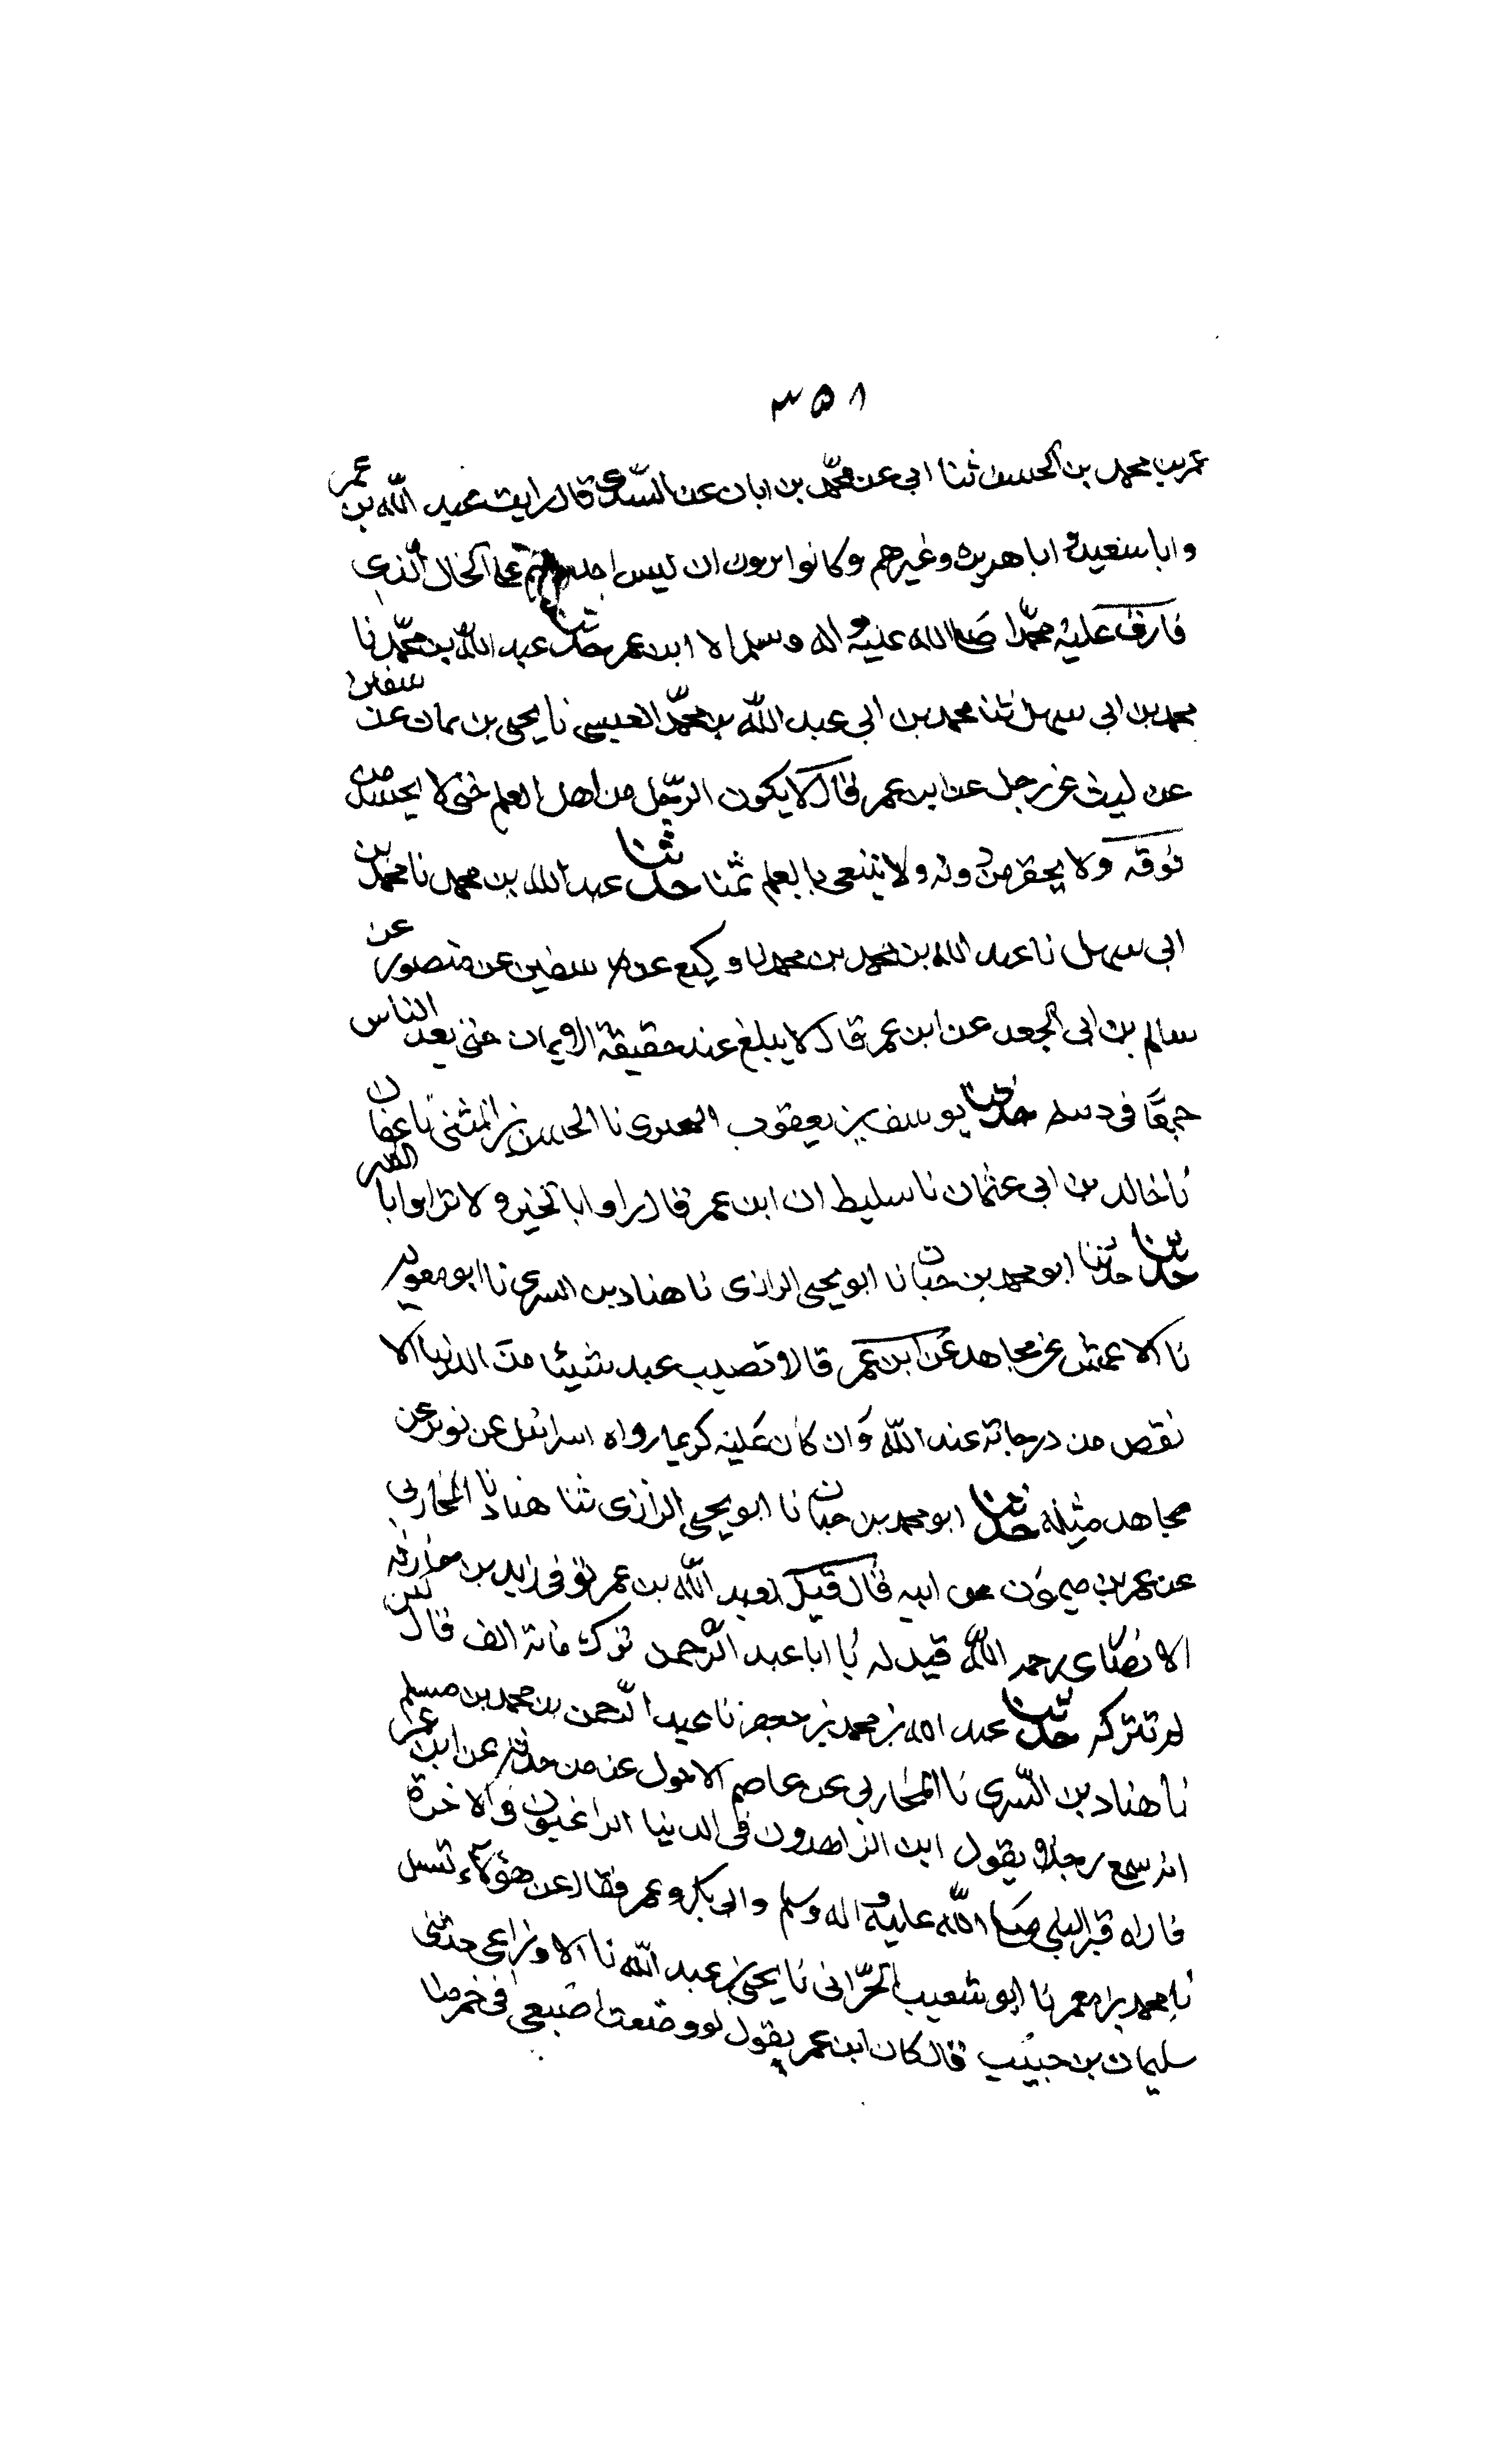 ٣٥٨
عمر بن محمد بن الحسن ثنا ابي عن محمّد بن ابان عن السّدى قال رايت عبد الله بن عمر
وابا سعيد و ابا هريره وغيرهم وكانوا يرون ان ليس احد منهم على الحال الّذي
فارق عليه محمّدا صلى الله عليه و اله وسلم الا ابن عمر حدثنا عبد الله بن محمّد نا
محمد بن ابي سهل ثنا محمد بن ابي عبد الله بن محمّد العبسي نا يحيى بن يمان عن سفين
عن ليث عن رجل عن ابن عمر قال لا يكون الرّجل من اهل العلم حتى لا يحسد من
فوقه ولا يحقر من دونه ولا يبتغى بالعلم ثمنا حدثنا عبد الله بن محمد نا محمد بن
ابي سهل نا عبد الله بن محمد بن محمد نا وكيع عن سفين عن منصور عن
سالم بن ابي الجعد عن ابن عمر قال لا يبلغ عبد حقيقة الايمان حتى يعد الناس
حمقا في دينه حدثنا يوسف بن يعقوب نا الحسن بن المثنى نا عفان
نا خالد بن ابي عثمان نا سليط ان ابن عمر قال راوا بالخير ولا تراوا با الشر
حدثنا حدثنا ابو محمد بن حبان نا ابو يحيى الرازى نا هناد بن السرى نا ابو معويه
نا الاعمش عن مجاهد عن ابن عمر قال لا تصيب عبد شيئا من الدنيا الا
نقص من درجاته عند الله وان كان عليه كريما رواه اسرائيل عن ثوير عن
مجاهد مثله حدثنا ابو محمد بن حبان نا ابو يحيى الرازى ثنا هناد نا المحاربي
عن عمر بن ميمون عن ابيه قال قيل لعبد الله بن عمر توفى زيد بن حارثه
الانصارى رحمه الله قيل له يا ابا عبد الرّحمن ترك مائة الف قال لكن
لم تتركه حدثنا عبد الله بن محمد بن جعفر نا عبد الرّحمن بن محمد بن مسلم
نا هناد بن السّرى نا المحاربي عن عاصم الاحول عن من حدثه عن ابن عمر
انه سمع رجلا يقول اين الزاهدون في الدنيا الراغبون في الاخرة
فاراه قبر النبي صلى الله عليه و اله وسلم وابى بكر وعمر فقال عن هؤلاء تسئل
نا محمد بن معمر نا ابو شعيب الحرّانى نا يحيى بن عبد الله نا الاوزاعي حدثني
سليمان بن حبيب قال كان ابن عمر يقول لو وضعت اصبعي في خمر ما